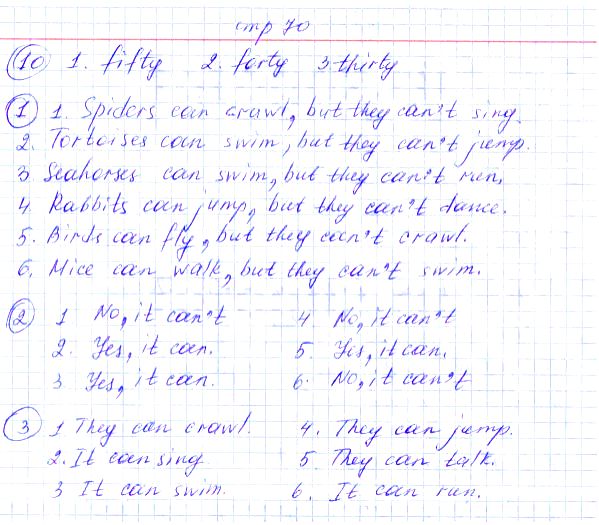 стр 70
10 1. fifty 2. forty 3 thirty
1 1. Spiders can crawl, but they can't sing.
2. Tortoises can swim, but they can't jump.
3 Seahorses can swim, but they can't run.
4. Rabbits can jump, but they can't dance.
5. Birds can fly, but they can't crawl.
6. Mice can walk, but they can't swim.
2 1 No, it can't 4 No, it can't
2. Yes, it can. 5. Yes, it can.
3 Yes, it can. 6. No, it can't
3 1 They can crawl. 4. They can jump.
2. It can sing 5 They can talk.
3 It can swim. 6. It can run.